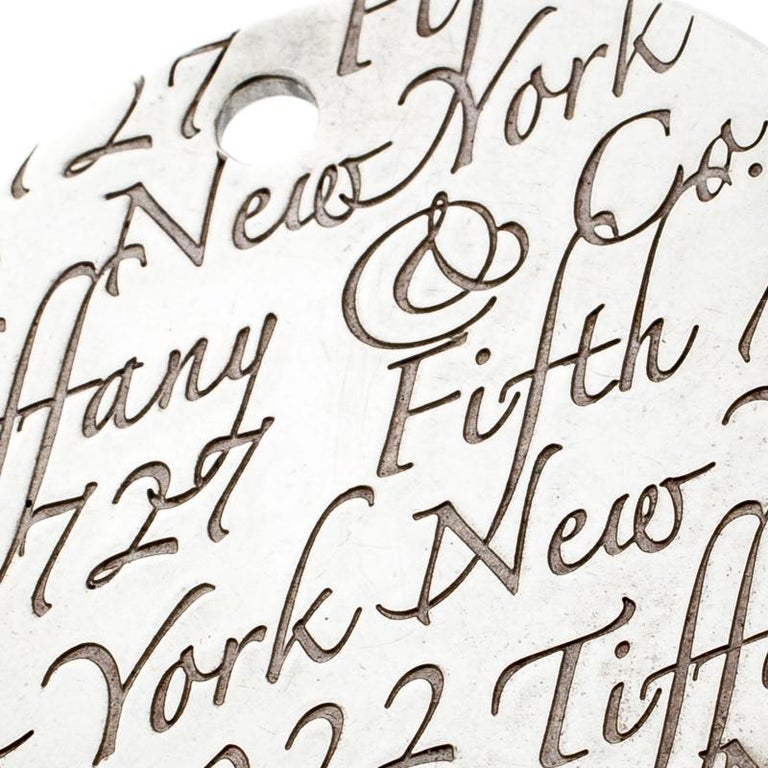 27 Fif
New York
Tiffany & Co.
727 Fifth
York New
022 Tiff